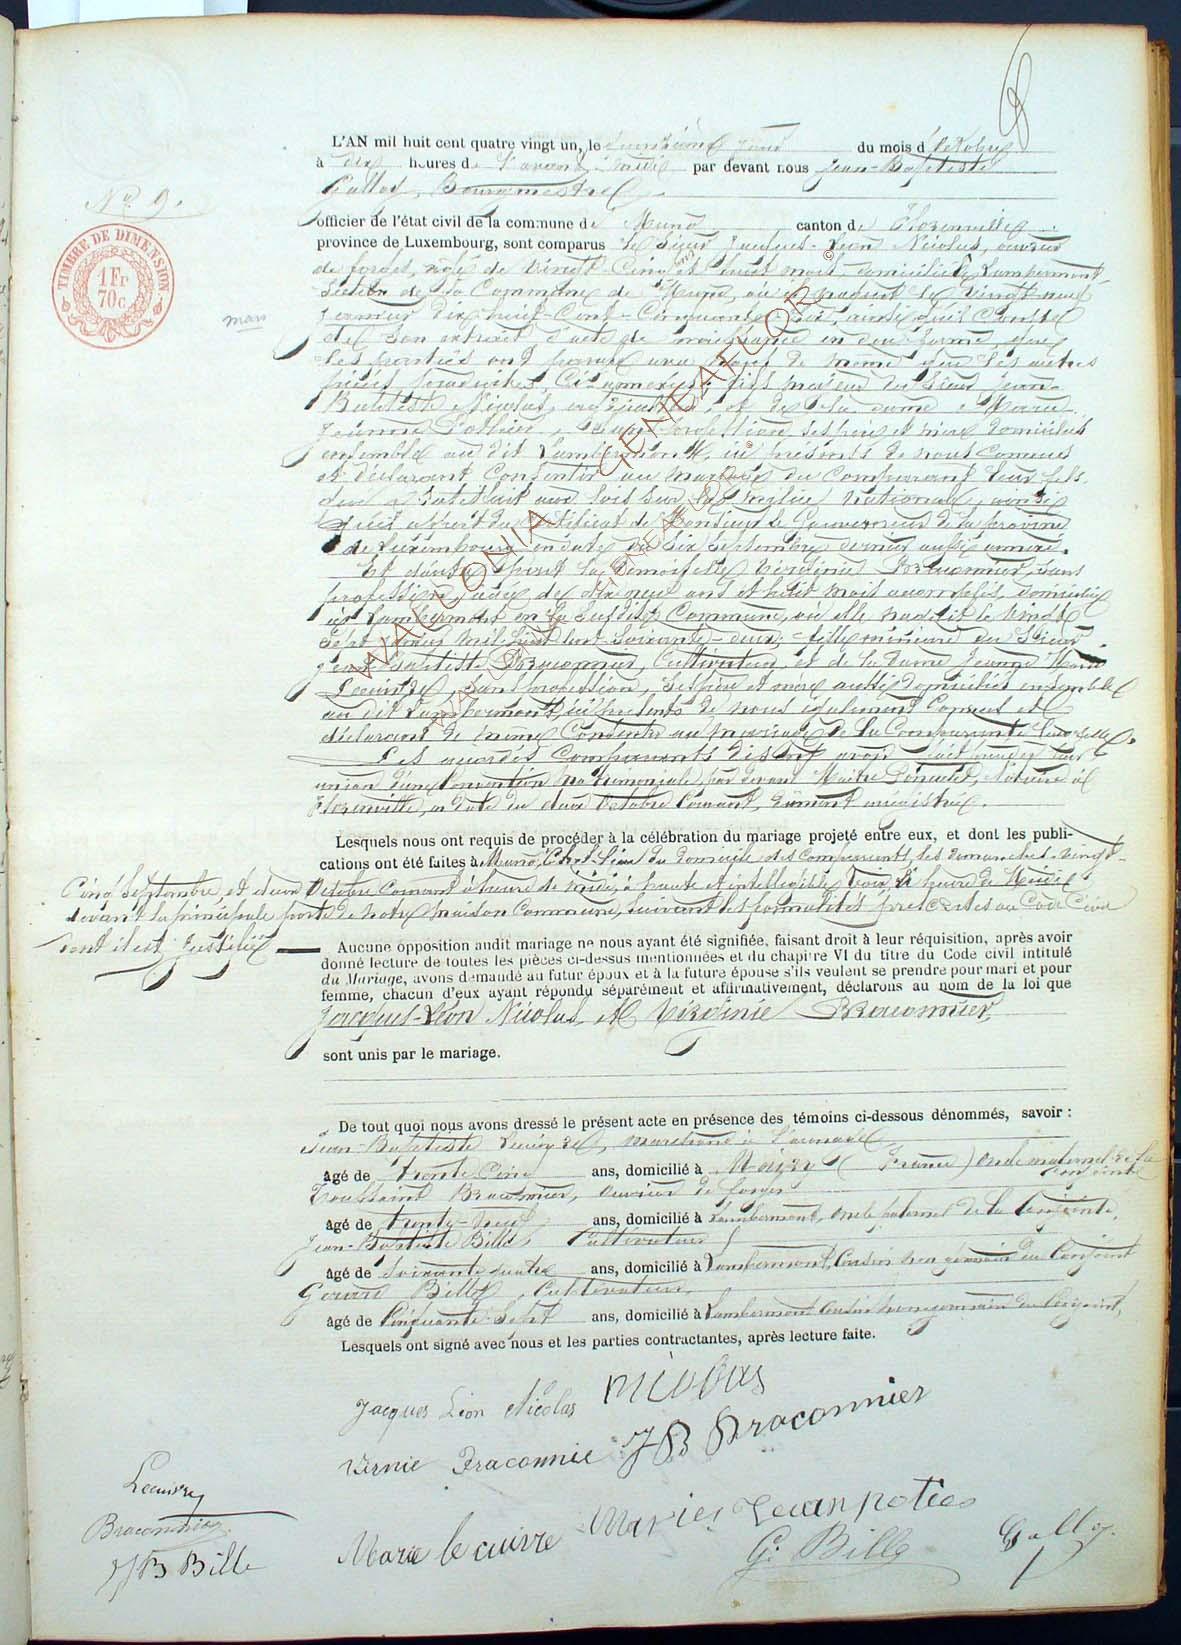 6
L'AN mil huit cent quatre vingt un, le jour du mois d'Octobre
à dix heures de l'avant-midi par devant nous Jean-Baptiste
Galloy, Bourgmestre
N° 9.
officier de l'état civil de la commune de Muno canton de Florenville
province de Luxembourg, sont comparus le sieur Jacques-Léon Nicolas, ouvrier
de forges, âgé de vingt-cinq et huit mois, domicilié à Lambermont
section de la Commune de Muno, où il naquit le vingt neuf
TIMBRE DE DIMENSION
1 Fr
70 c.
mars
Janvier dix huit-Cent-Cinquante six, ainsi qu'il conste
de son extrait d'acte de naissance en due forme, que
les parties ont de même que les autres
pièces produites, fils majeur du sieur Jean-
Baptiste Nicolas, et de la dame Marie
Jeanne Pothier, sans profession, ses père et mère domiciliés
ensemble au dit Lambermont, ici présents de nous connus
et déclarant consentir au mariage du comparant leur fils
qui a satisfait aux lois sur la milice nationale, ainsi
qu'il appert du certificat de Monsieur le Gouverneur de la province
de Luxembourg en date du six Septembre dernier aussi annexé.
Et d'autre part la Demoiselle Virginie Braconnier, sans
profession, âgée de dix neuf ans et huit mois accomplis, domiciliée
à Lambermont en la susdite Commune, où elle naquit le vingt
sept mil huit cent soixante-deux, fille mineure du Sieur
Jean-Baptiste Braconnier, Cultivateur, et de la Dame Jeanne Marie
Lecuivre, sans profession, ses père et mère aussi domiciliés ensemble
au dit Lambermont, ici présents de nous également connus et
déclarant de même consentir au mariage de la Comparante leur fille.
Les susdits Comparants disent avoir fait précéder leur
union d'une Convention matrimoniale, par devant Maître Notaire à
Florenville, en date du deux Octobre Courant, dûment enregistrée.
Lesquels nous ont requis de procéder à la célébration du mariage projeté entre eux, et dont les publi-
cations ont été faites à Muno, Chef-lieu du domicile des comparants, les dimanches vingt-
cinq Septembre, et deux Octobre Courant à l'heure de midi, à haute et intelligible voix,
devant la principale porte de notre maison Commune, suivant les formalités prescrites au Code Civil
dont il est justifié
Aucune opposition audit mariage ne nous ayant été signifiée, faisant droit à leur réquisition, après avoir
donné lecture de toutes les pièces ci-dessus mentionnées et du chapitre VI du titre du Code civil intitulé
du Mariage, avons demandé au futur époux et à la future épouse s'ils veulent se prendre pour mari et pour
femme, chacun d'eux ayant répondu séparément et affirmativement, déclarons au nom de la loi que
Jacques-Léon Nicolas et Virginie Braconnier
sont unis par le mariage.
De tout quoi nous avons dressé le présent acte en présence des témoins ci-dessous dénommés, savoir :
Jean-Baptiste Lecuivre, marchand
âgé de trente cinq ans, domicilié à (France) oncle maternel de la conjointe
Toussaint Braconnier, ouvrier de forges
âgé de trente-neuf ans, domicilié à Lambermont, oncle paternel de la conjointe,
Jean-Baptiste Bille, Cultivateur
âgé de soixante quatre ans, domicilié à Lambermont, Cousin non germain du Conjoint
Gérard Bille, cultivateur,
âgé de Cinquante-Sept ans, domicilié à Lambermont cousin non germain du Conjoint,
Lesquels ont signé avec nous et les parties contractantes, après lecture faite.
Jacques Léon Nicolas nicolas
virnie Braconnie JB Braconnier
Lecuivre
Braconnier
JB Bille
Marie lecuivre Marie Jean potier
G. Bille
Galloy
WALLONIA © GENEAFLOR
WALLONIA © GENEAFLOR